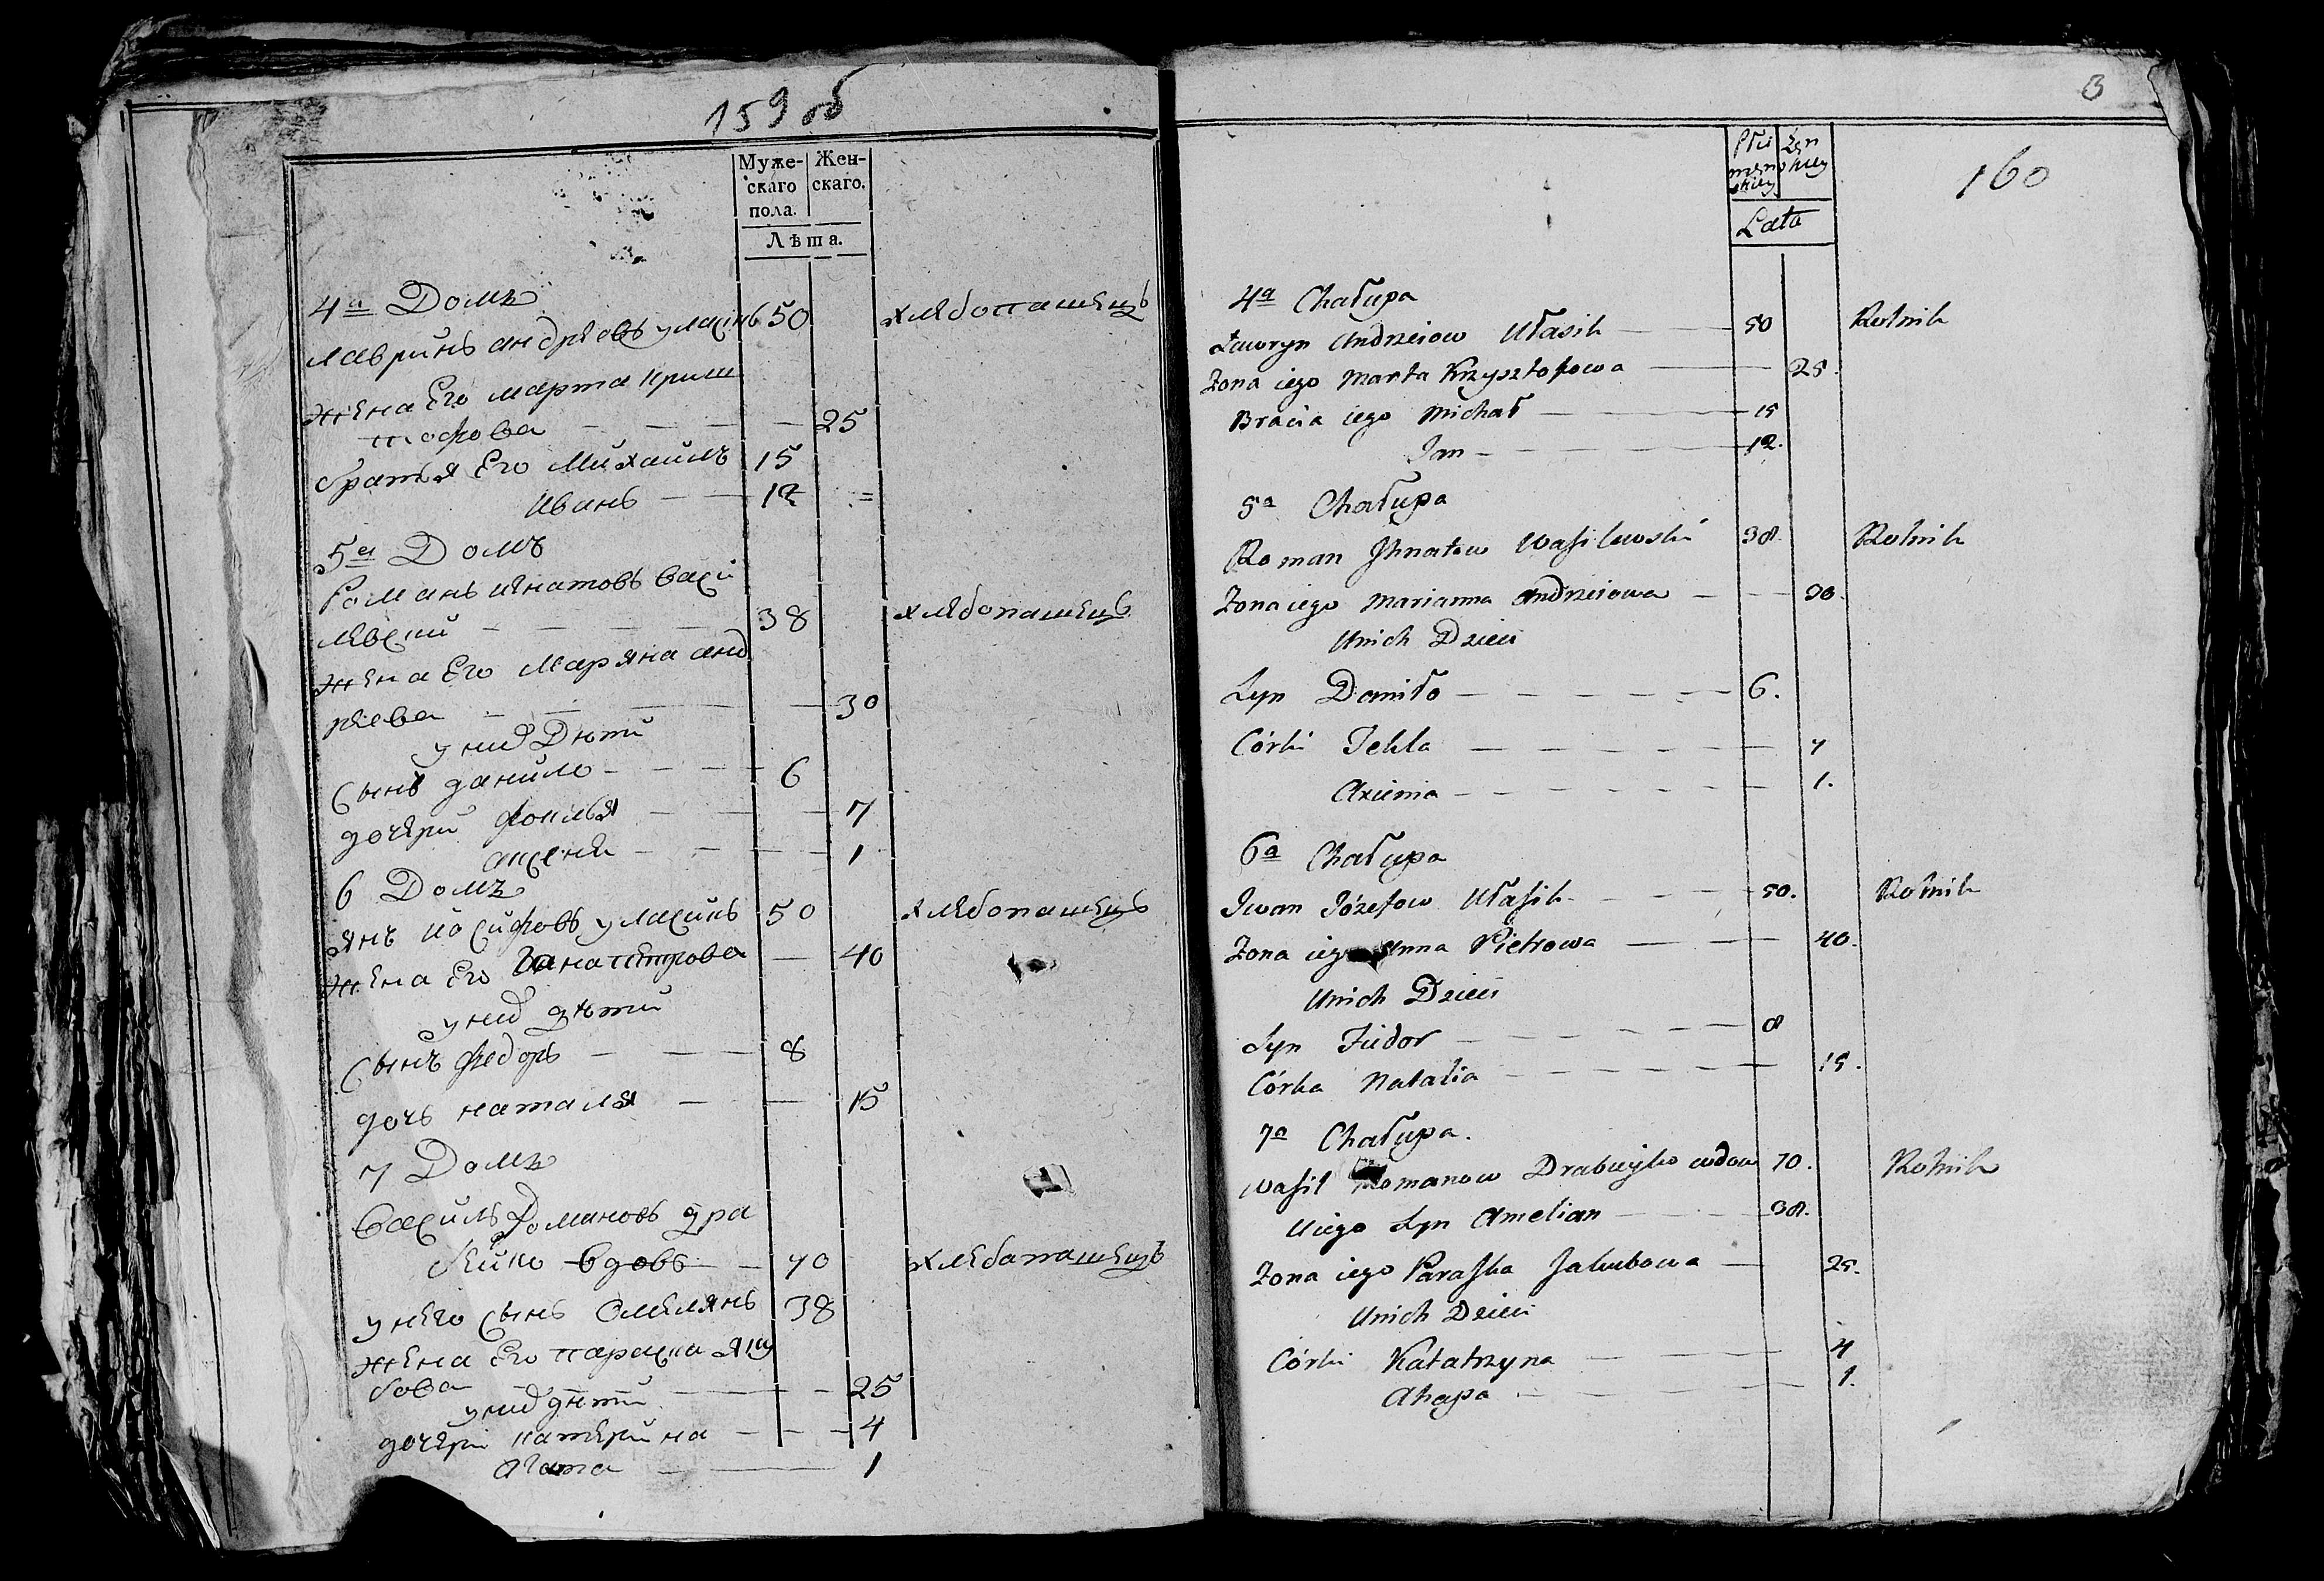 159 об
Муже-
скаго
пола.
Жен-
скаго.
Лѣта.
4а Домъ
лавринъ андрѣевъ уласикъ 50 хлѣбопашецъ
жена Его марта криш
тофова — — — — 25
братья Его Михаилъ 15
Иванъ — — 12 =
5а Домъ
Романъ игнатовъ васи
левский — — — 38 хлѣбопашецъ
жена Его Маряна анд
реева — — — 30
у них Дѣти
Сынъ данило — — — 6
дочери — — — 7
— — — 1
6 Домъ
янъ иосифовъ уласикъ 50 хлѣбопашецъ
жена Его петрова — 40
у них дѣти
Сынъ федоръ — — — 8
дочь наталя — — 15
7 Домъ
Василь Романовъ дра
бейко вдовъ — 70 хлѣбапашецъ
у него сынъ Омелянъ 38
жена Его параска яку
бова — — — 25
у них дѣти
дочери катерина — — — 4
Агата — — 1
3
160
Płci
męz
skiey
Żeń
skiey
Lata
4a Chałupa
Ławryn Andrzeiow Ułasik — — 50 Rolnik
Zona iego Marta Krzysztofowa — — 25.
Bracia iego Michał — — — 15
Jan — — — — 12.
5a Chałupa
Roman Ihnatow Wasilewski 38. Rolnik
Zona iego Marianna Andrzeiowa — — — 30.
Unich Dzieci
Syn Daniło — — — — — — 6.
Córki Tekla — — — — — — 7
Axienia — — — — — — — 1.
6a Chałupa
Iwan Józefow Ułasik — — — 50. Rolnik
Zona iego Anna Pietrowa — — — 40.
Unich Dzieci
Syn Fiedor — — — — — 8
Córka Natalia — — — — — — 15.
7a Chałupa.
Wasil Romanow Drabeyko wdow 70. Rolnik
Uiego Syn Amelian — — — 38.
Zona iego Paraska Jakubowa — — 25.
Unich Dzieci
Córki Katatrzyna — — — 4
Ahapa — — — — — 1.